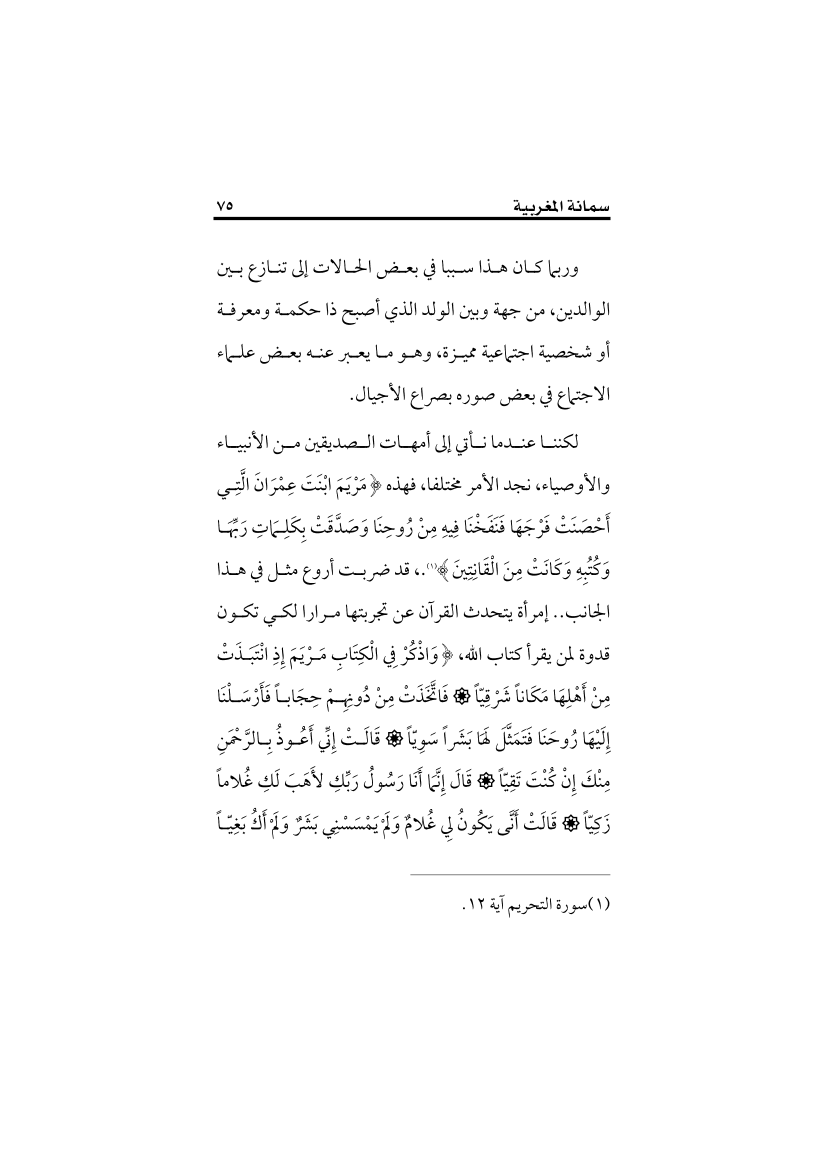 سمانة المغربية ٧٥
وربما كان هذا سببا في بعض الحالات إلى تنازع بين
الوالدين، من جهة وبين الولد الذي أصبح ذا حكمة ومعرفة
أو شخصية اجتماعية مميزة، وهو ما يعبر عنه بعض علماء
الاجتماع في بعض صوره بصراع الأجيال.
لكننا عندما نأتي إلى أمهات الصديقين من الأنبياء
والأوصياء، نجد الأمر مختلفا، فهذه ﴿مَرْيَمَ ابْنَتَ عِمْرَانَ الَّتِي
أَحْصَنَتْ فَرْجَهَا فَنَفَخْنَا فِيهِ مِنْ رُوحِنَا وَصَدَّقَتْ بِكَلِمَاتِ رَبِّهَا
وَكُتُبِهِ وَكَانَتْ مِنَ الْقَانِتِينَ﴾(١).، قد ضربت أروع مثل في هذا
الجانب.. إمرأة يتحدث القرآن عن تجربتها مرارا لكي تكون
قدوة لمن يقرأ كتاب الله، ﴿وَاذْكُرْ فِي الْكِتَابِ مَرْيَمَ إِذِ انْتَبَذَتْ
مِنْ أَهْلِهَا مَكَاناً شَرْقِيّاً ۞ فَاتَّخَذَتْ مِنْ دُونِهِمْ حِجَاباً فَأَرْسَلْنَا
إِلَيْهَا رُوحَنَا فَتَمَثَّلَ لَهَا بَشَراً سَوِيّاً ۞ قَالَتْ إِنِّي أَعُوذُ بِالرَّحْمَنِ
مِنْكَ إِنْ كُنْتَ تَقِيّاً ۞ قَالَ إِنَّمَا أَنَا رَسُولُ رَبِّكِ لأَهَبَ لَكِ غُلاماً
زَكِيّاً ۞ قَالَتْ أَنَّى يَكُونُ لِي غُلامٌ وَلَمْ يَمْسَسْنِي بَشَرٌ وَلَمْ أَكُ بَغِيّاً
(١)سورة التحريم آية ١٢.